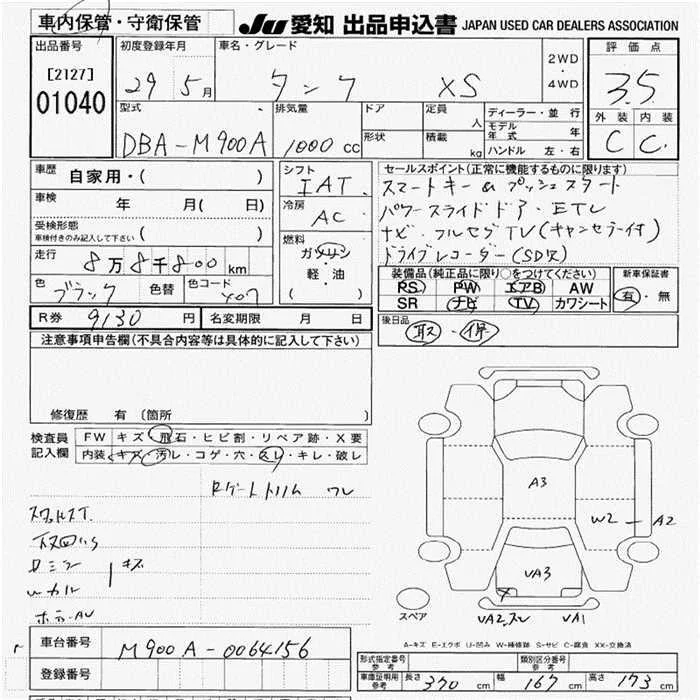 車内保管・守衛保管 JU 愛知 出品申込書 JAPAN USED CAR DEALERS ASSOCIATION
出品番号 初度登録年月 車名・グレード 2WD・4WD 評価点
[2127] 29 5月 タンク XS 3.5
01040 型式 排気量 ドア 定員 人 ディーラー・並行 外装 内装
DBA-M900A 1000cc 形状 積載 kg モデル年式 年 C C
ハンドル 左・右
車歴 自家用・( ) シフト IAT セールスポイント(正常に機能するものに限ります)
車検 年 月( 日) 冷房 AC スマートキー& プッシュスタート
受検形態 車検付きのみ記入して下さい ( ) パワースライドドア・ETC
走行 8万8千800km 燃料 ガソリン 軽・油 ( ) ナビ・フルセグTV(キャンセラー付)
ドライブレコーダー(SD欠)
色 ブラック 色替 色コード X07 装備品(純正品に限り○をつけてください) 新車保証書
PS PW エアB AW 有・無
SR ナビ TV カワシート
R券 9130円 名変期限 月 日 後日品 取・保
注意事項申告欄(不具合内容等は具体的に記入して下さい)
修復歴 有 (箇所 )
検査員 FW キズ・飛石・ヒビ割・リペア跡・X要
記入欄 内装 キズ・汚レ・コゲ・穴・スレ・キレ・破レ
Rゲートトリム ワレ
A3
W2 A2
キズ
VA3
スペア VA2.スレ VA1
車台番号 M900A-0064156
A-キズ E-エクボ U-凹み W-補修跡 S-サビ C-腐食 XX-交換済
登録番号 形式指定番号 参考 類別区分番号 参考
車庫証明用 参考 長さ 370cm 幅 167cm 高さ 173cm